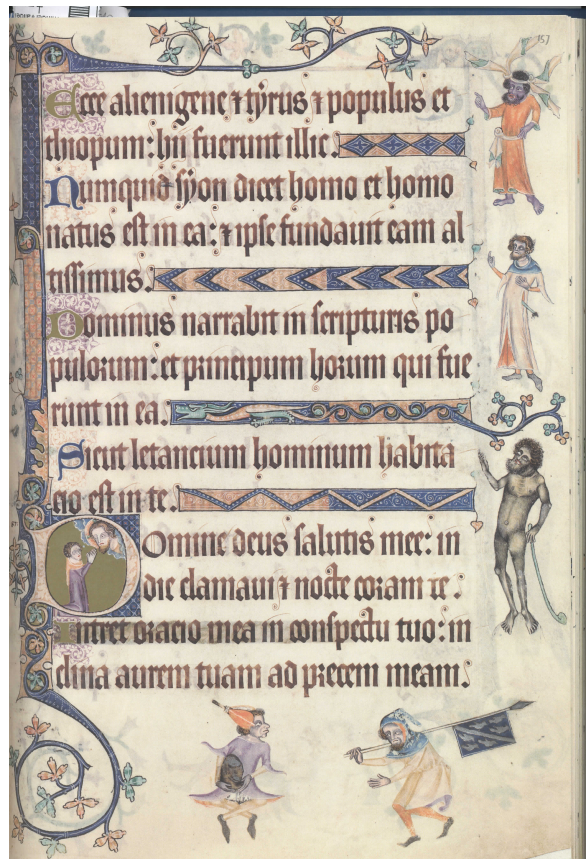 157
Ecce alienigene ⁊ tyrus ⁊ populus et
thiopum: hii fuerunt illic.
Numquid syon dicet homo et homo
natus est in ea: ⁊ ipse fundauit eam al
tissimus.
Dominus narrabit in scripturis po
pulorum: et principum horum qui fue
runt in ea.
Sicut letancium hominum habita
cio est in te.
Domine deus salutis mee: in
die clamaui ⁊ nocte coram te.
Intret oracio mea in conspectu tuo: in
clina aurem tuam ad precem meam.